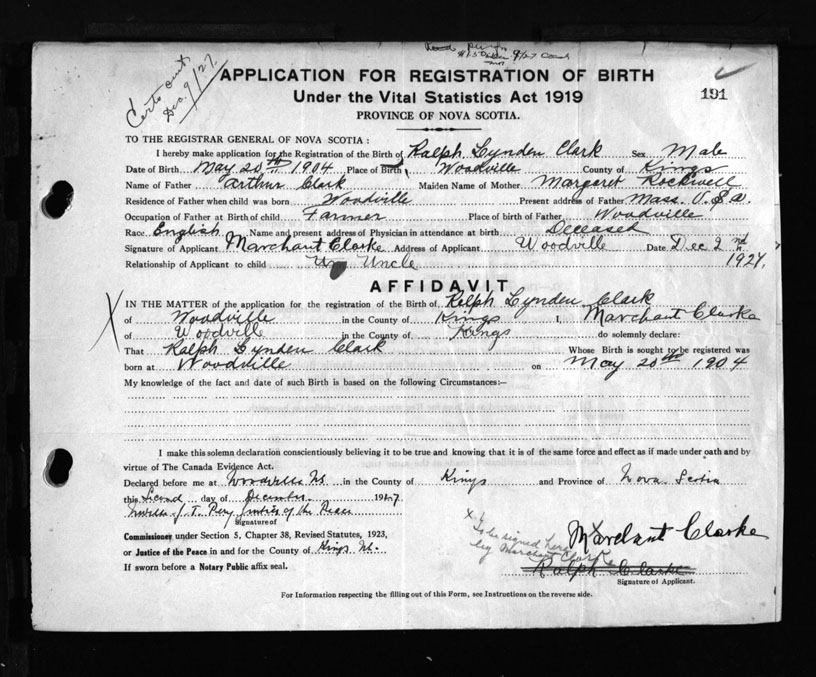 Certs out
Dec. 9/27.
9/27
APPLICATION FOR REGISTRATION OF BIRTH
191
Under the Vital Statistics Act 1919
PROVINCE OF NOVA SCOTIA.
TO THE REGISTRAR GENERAL OF NOVA SCOTIA :
I hereby make application for the Registration of the Birth of Ralph Lynden Clark Sex Male
Date of Birth May 20th 1904 Place of Birth Woodville County of Kings
Name of Father Arthur Clark Maiden Name of Mother Margaret Rockwell
Residence of Father when child was born Woodville Present address of Father Mass. U.S.A.
Occupation of Father at Birth of child Farmer Place of birth of Father Woodville
Race English Name and present address of Physician in attendance at birth Deceased
Signature of Applicant Marchant Clarke Address of Applicant Woodville Date Dec 2nd
1927.
Relationship of Applicant to child Uncle
AFFIDAVIT
IN THE MATTER of the application for the registration of the Birth of Ralph Lynden Clark
of Woodville in the County of Kings I, Marchant Clarke
of Woodvill in the County of Kings do solemnly declare:
That Ralph Lynden Clark Whose Birth is sought to be registered was
born at Woodville on May 20th 1904
My knowledge of the fact and date of such Birth is based on the following Circumstances:—
I make this solemn declaration conscientiously believing it to be true and knowing that it is of the same force and effect as if made under oath and by
virtue of The Canada Evidence Act.
Declared before me at Woodville NS. in the County of Kings and Province of Nova Scotia
this Second day of December 1927
J. T. Justice of the Peace
Signature of
Commissioner under Section 5, Chapter 38, Revised Statutes, 1923,
or Justice of the Peace in and for the County of Kings NS.
If sworn before a Notary Public affix seal.
X to be signed here
by Marchant Clarke
Marchant Clarke
Ralph Clarke
Signature of Applicant.
For Information respecting the filling out of this Form, see Instructions on the reverse side.